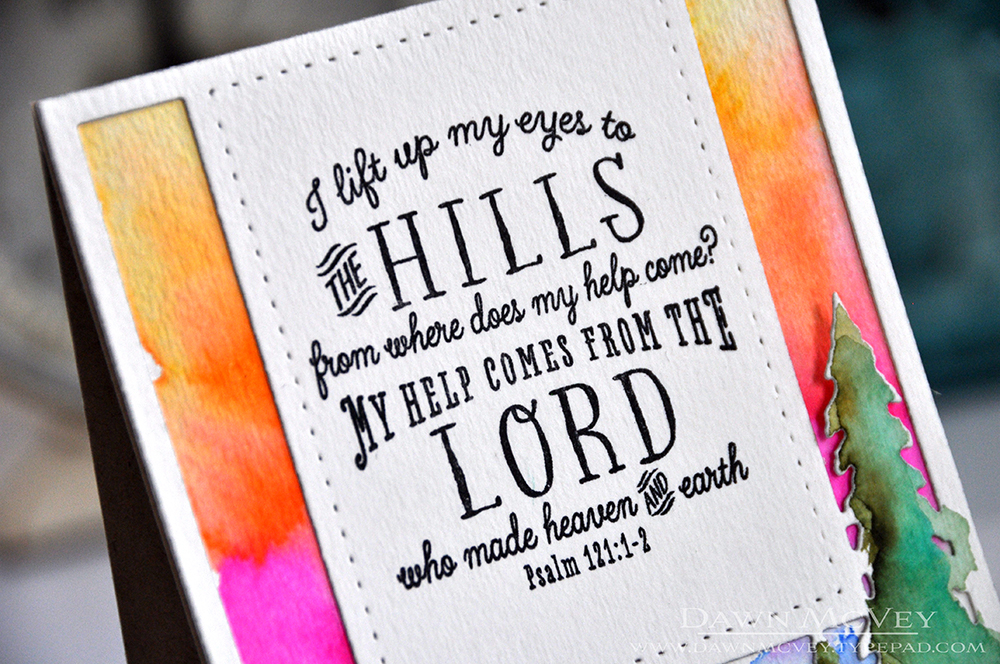 I lift up my eyes to
THE HILLS
from where does my help come?
MY HELP COMES FROM THE
LORD
who made heaven AND earth
Psalm 121:1-2
DAWN MCVEY
WWW.DAWNMCVEY.TYPEPAD.COM